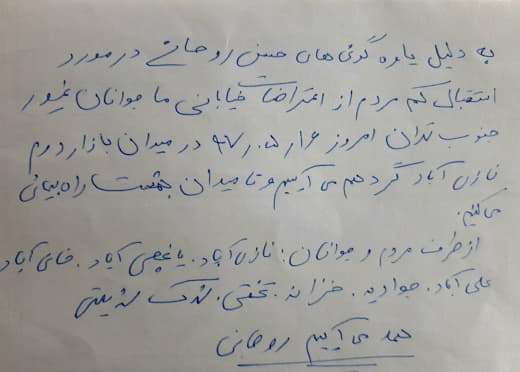 به دلیل یاوه گوئی های حسن روحانی در مورد
استقبال کم مردم از اعتراضات خیابانی ما جوانان غیور
جنوب تهران امروز ۱۶ر۰۵ر۹۷ در میدان بازار دوم
نازی آباد گرد هم می آییم و تا میدان بهشت راه پیمائی
می کنیم.
از طرف مردم و جوانان: نازی آباد. یاغچی آباد. خانی آباد
علی آباد. جوادیه. خزانه. تختی.
همه می آییم روحانی